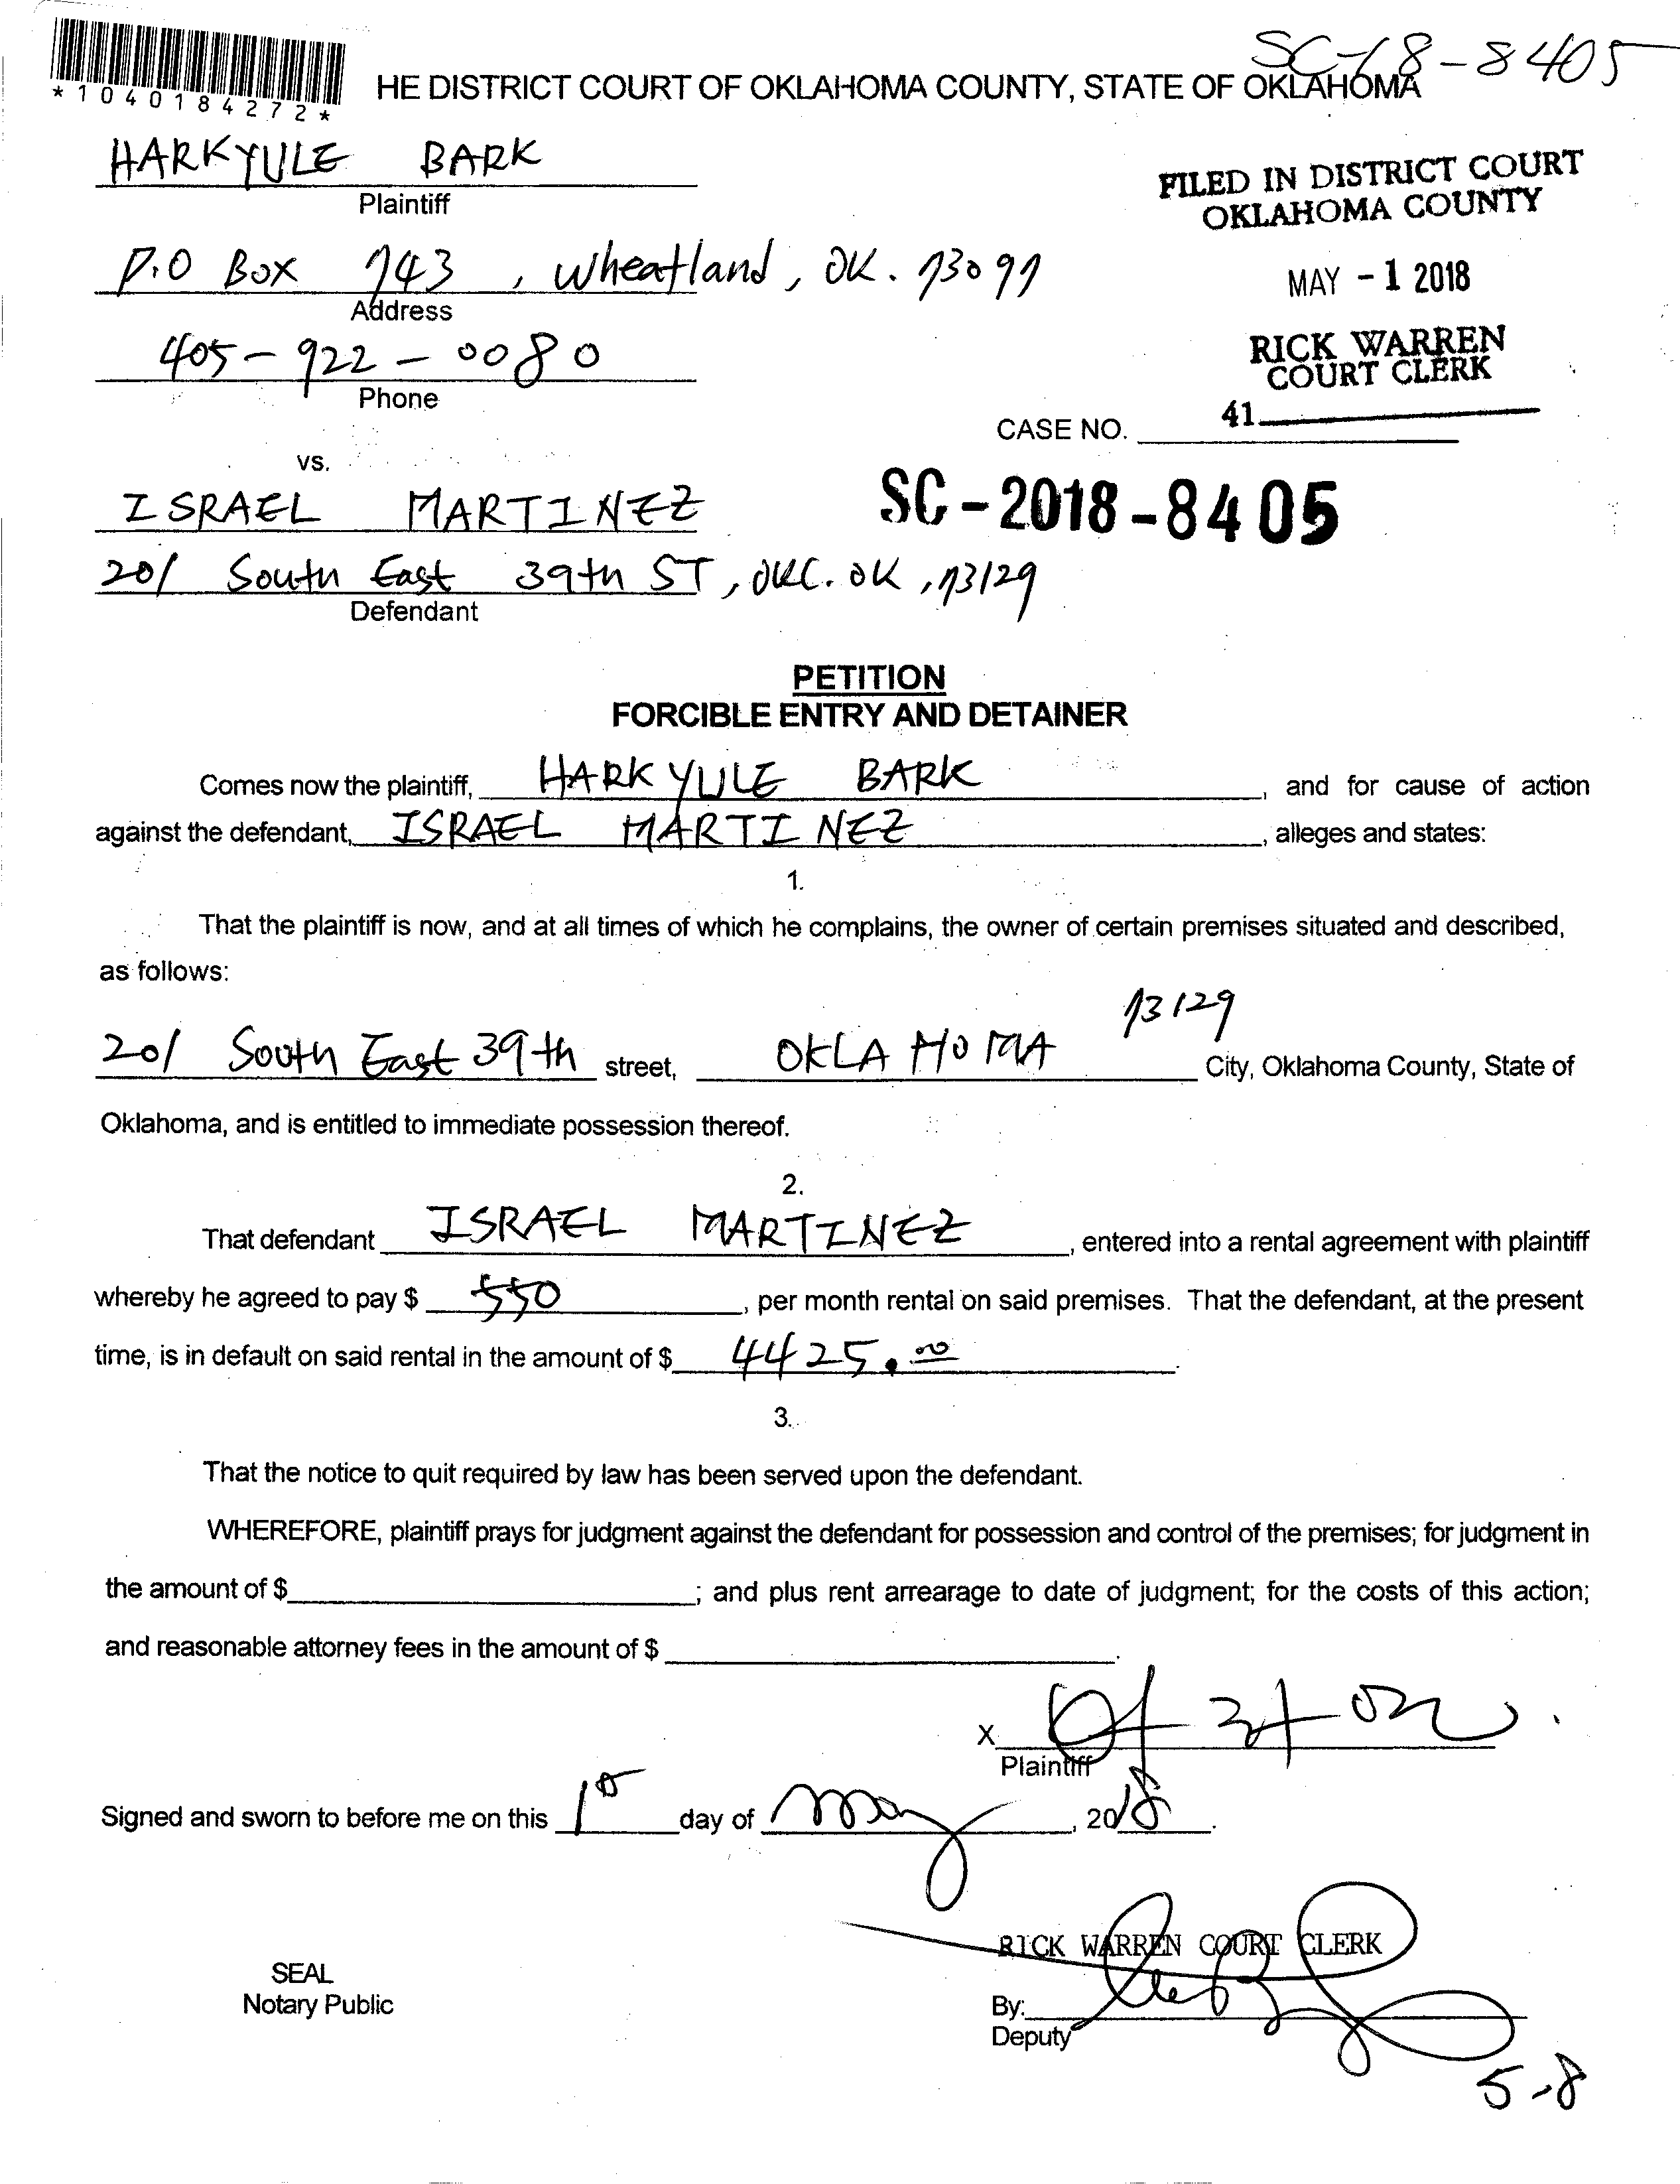 SC-18-8405
*1040184272*
HE DISTRICT COURT OF OKLAHOMA COUNTY, STATE OF OKLAHOMA
HARKYULE BARK
Plaintiff
FILED IN DISTRICT COURT
OKLAHOMA COUNTY
P.O BOX 743, Wheatland, OK. 73097
Address
MAY - 1 2018
405-922-0080
Phone
RICK WARREN
COURT CLERK
41
CASE NO.
vs.
SC-2018-8405
ISRAEL MARTINEZ
201 South East 39th ST, OKC. OK, 73129
Defendant
PETITION
FORCIBLE ENTRY AND DETAINER
Comes now the plaintiff, HARKYULE BARK, and for cause of action
against the defendant, ISRAEL MARTINEZ, alleges and states:
1.
That the plaintiff is now, and at all times of which he complains, the owner of certain premises situated and described,
as follows:
73129
201 South East 39th street, OKLAHOMA City, Oklahoma County, State of
Oklahoma, and is entitled to immediate possession thereof.
2.
That defendant ISRAEL MARTINEZ, entered into a rental agreement with plaintiff
whereby he agreed to pay $ 550, per month rental on said premises. That the defendant, at the present
time, is in default on said rental in the amount of $ 4425.00.
3.
That the notice to quit required by law has been served upon the defendant.
WHEREFORE, plaintiff prays for judgment against the defendant for possession and control of the premises; for judgment in
the amount of $ ; and plus rent arrearage to date of judgment; for the costs of this action;
and reasonable attorney fees in the amount of $ .
X
Plaintiff
Signed and sworn to before me on this 1st day of May, 2018.
RICK WARREN COURT CLERK
SEAL
Notary Public
By:
Deputy
5-8